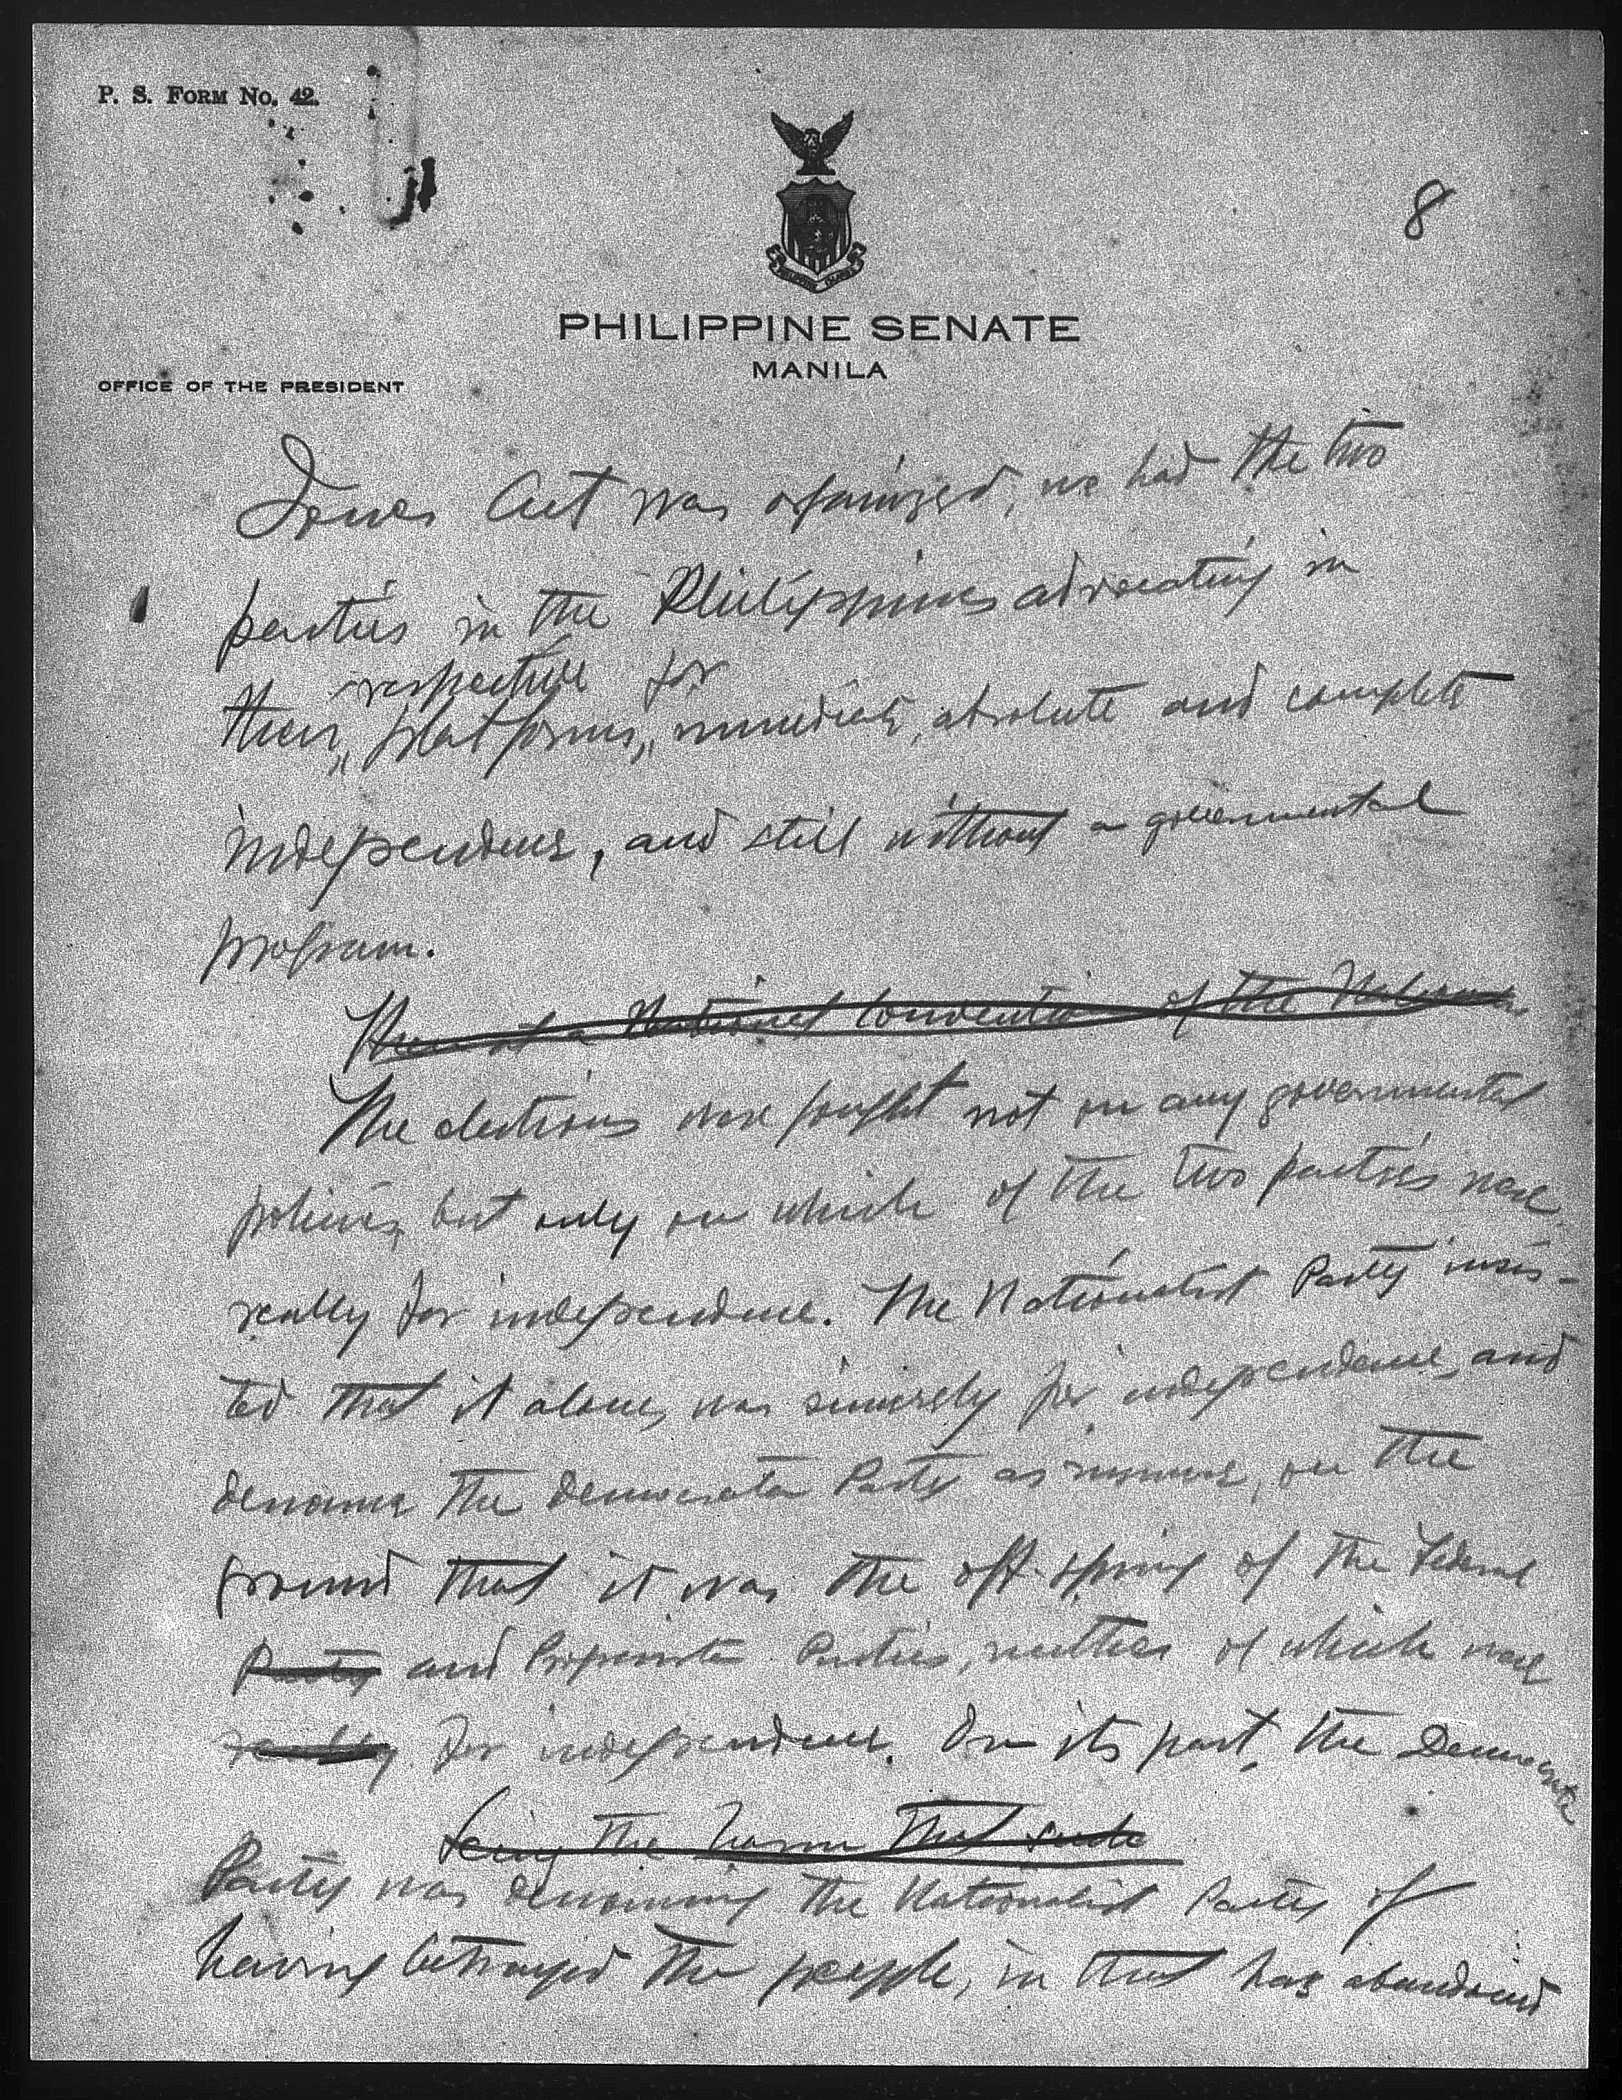 P. S. FORM No. 42.
8
PHILIPPINE SENATE
MANILA
OFFICE OF THE PRESIDENT
Jones Act was organized, we had the two
parties in the Philippines advocating in
respective for
their platforms, immediate, absolute and complete
independence, and still without a governmental
program.
a National Convention of the
The elections were fought not on any governmental
policies, but only on which of the two parties were
really for independence. The Nationalist Party insis-
ted that it alone, was sincerely for independence, and
denounce the Democrata Party as insincere, on the
ground that it was the off-spring of the Federal
Party and Progresista Parties, neither of which were
really for independence. On its part, the Democrata
being the that
Party was denouncing the Nationalist Party of
having betrayed the people, in that has abandoned